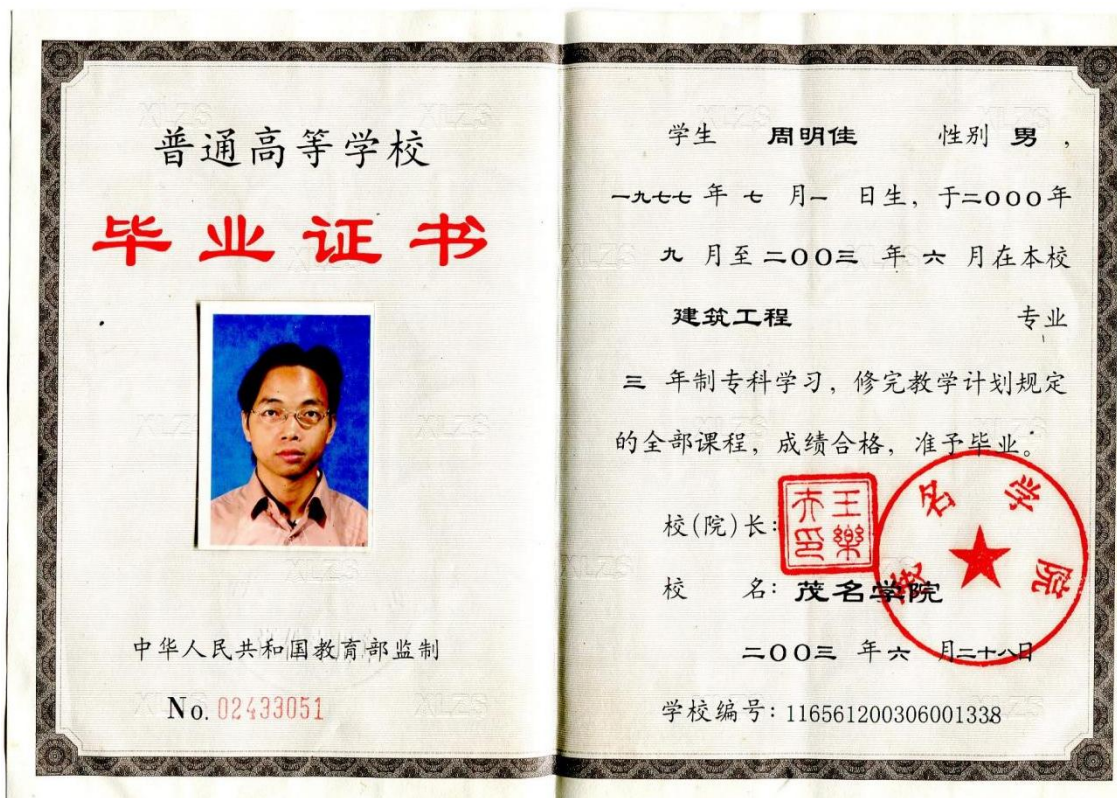 普通高等学校
毕业证书
中华人民共和国教育部监制
No. 02433051
学生 周明佳 性别 男,
一九七七年 七 月一 日生, 于二000年
九 月至二00三 年 六 月在本校
建筑工程 专业
三 年制专科学习, 修完教学计划规定
的全部课程, 成绩合格, 准予毕业。
校(院)长:
王乐夫印
校 名: 茂名学院
茂名学院
二00三 年六 月二十八日
学校编号: 116561200306001338